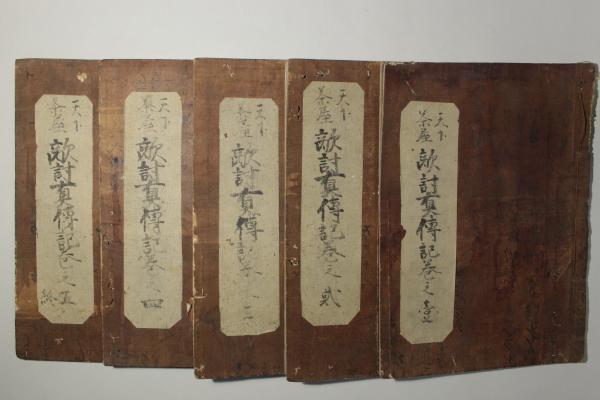 天下
茶屋
敵討真傳記巻之壹
天下
茶屋
敵討真傳記巻之貮
天下
茶屋
敵討真傳記巻之三
天下
茶屋
敵討真傳記巻之四
天下
茶屋
敵討真傳記巻之五
終